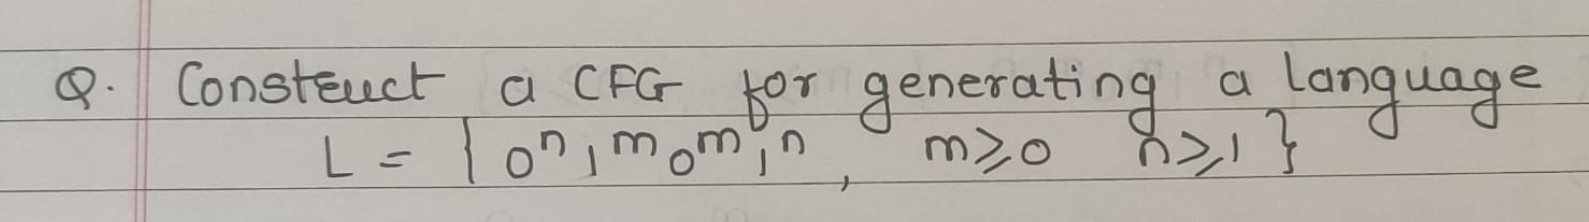 Q. Construct a CFG for generating a language
L = { 0ⁿ 1ᵐ 0ᵐ 1ⁿ, m ≥ 0 n ≥ 1 }